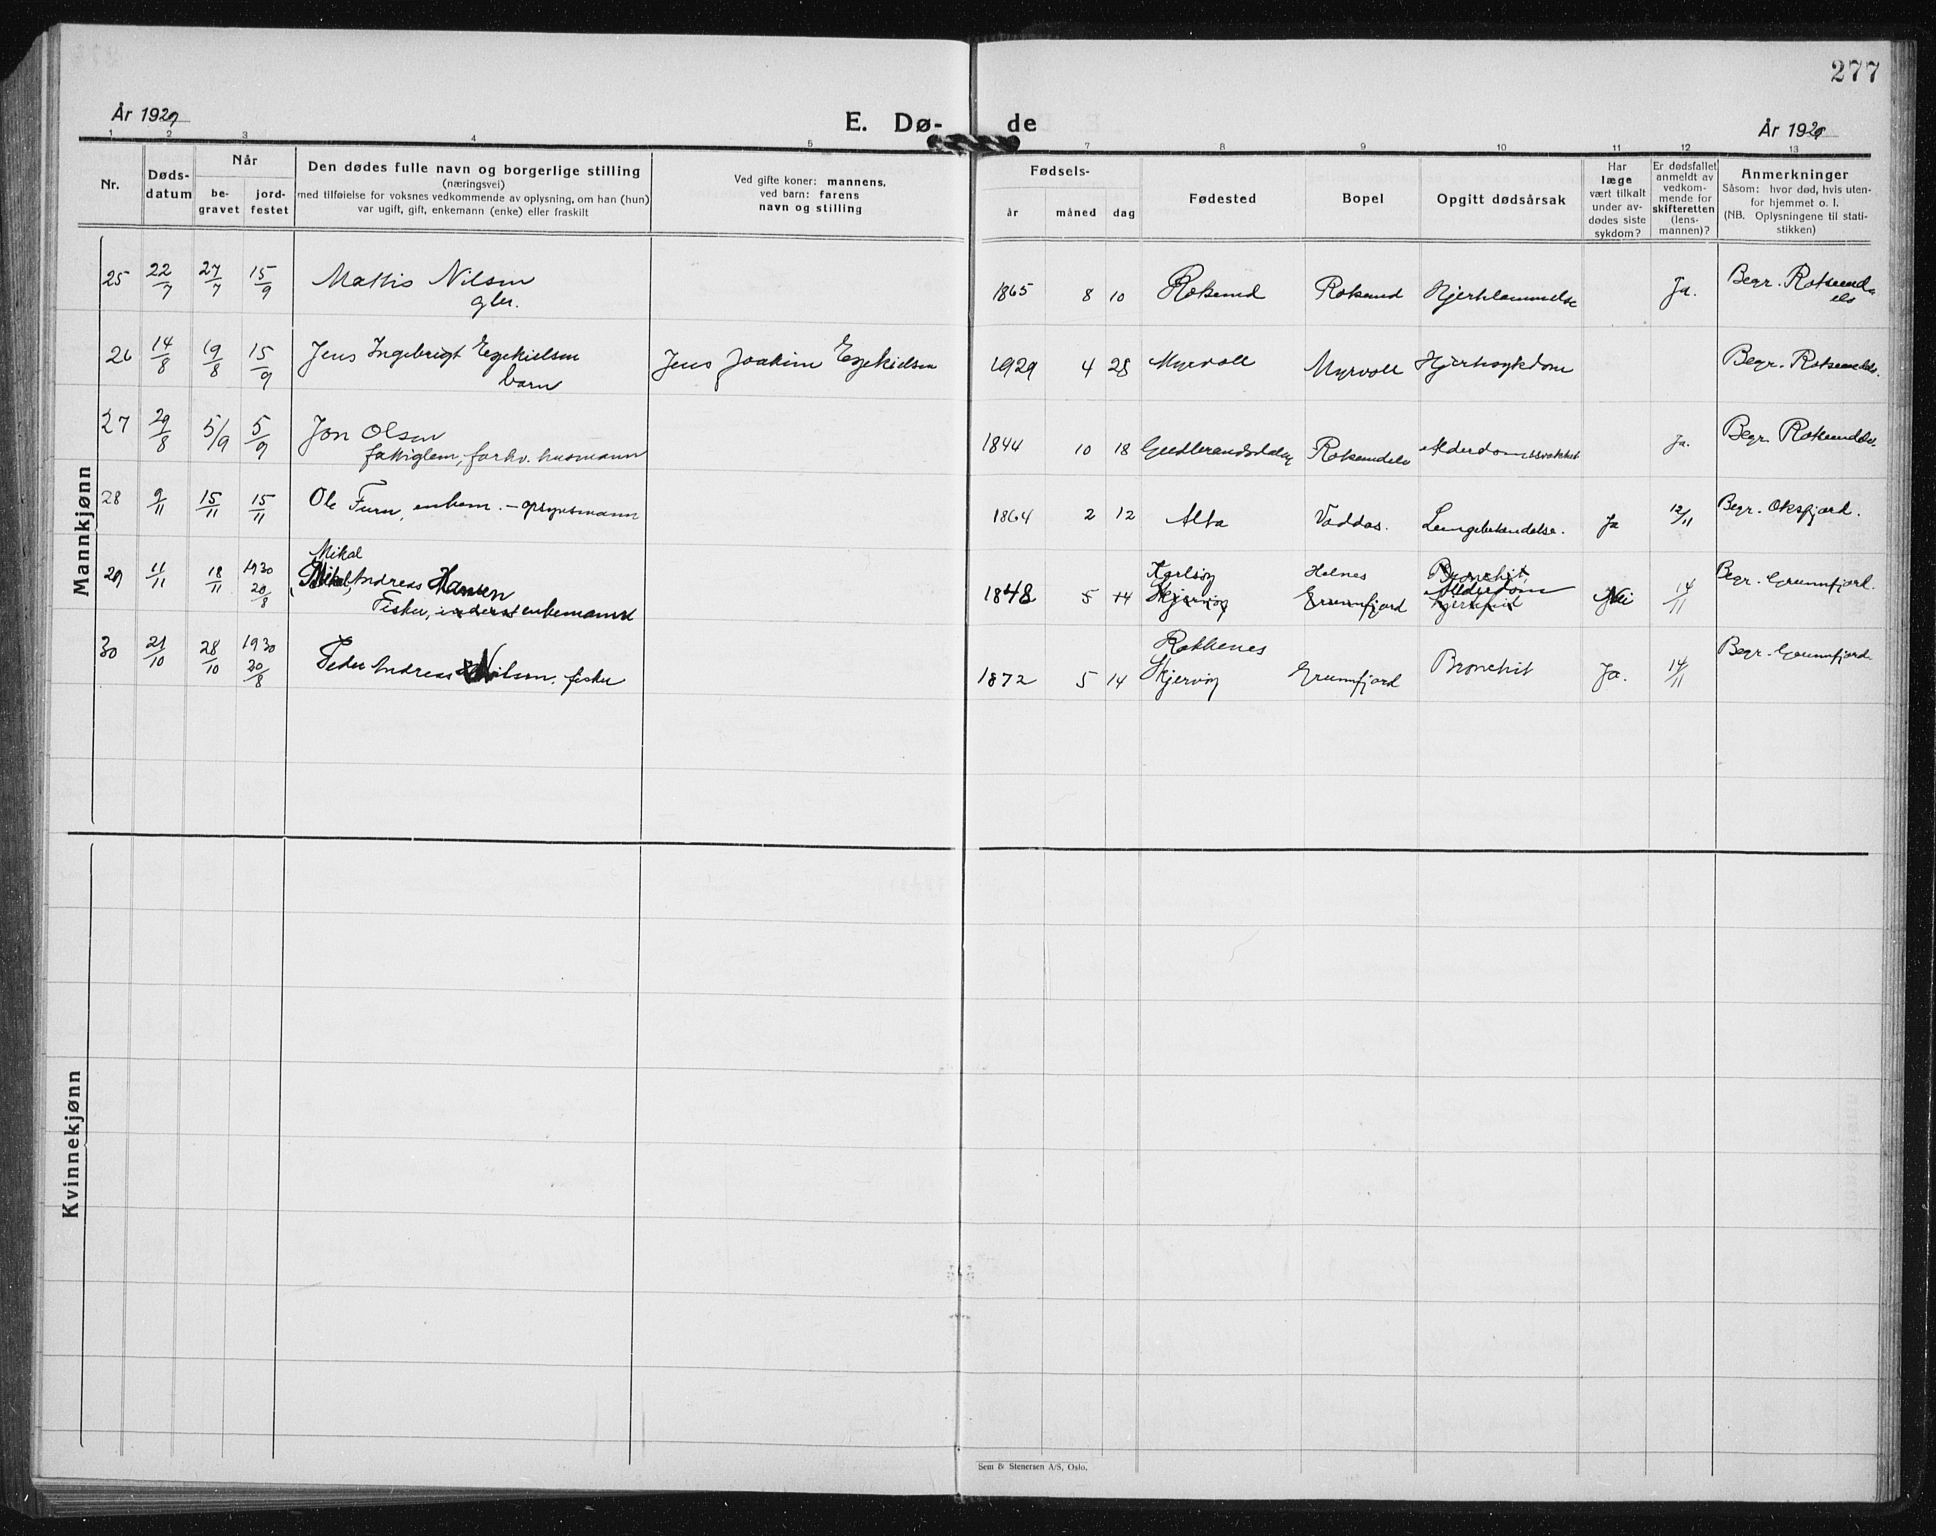 277
År 1929
E. Dø-
de
År 1929
1 2 3 4 5 7 8 9 10 11 12 13
Nr.
Døds-
datum
Når
be-
gravet
jord-
festet
Den dødes fulle navn og borgerlige stilling
(næringsvei)
med tilføielse for voksnes vedkommende av oplysning, om han (hun)
var ugift, gift, enkemann (enke) eller fraskilt
Ved gifte koner: mannens,
ved barn: farens
navn og stilling
Fødsels-
år måned dag
Fødested
Bopel
Opgitt dødsårsak
Har
læge
vært tilkalt
under av-
dødes siste
sykdom?
Er dødsfallet
anmeldt av
vedkom-
mende for
skifteretten
(lens-
mannen)?
Anmerkninger
Såsom: hvor død, hvis uten-
for hjemmet o. l.
(NB. Oplysningene til stati-
stikken)
Mannkjønn
25 22/7 27/7 15/9 Mattis Nilsen 1865 8 10 Roksund Roksund Hjertelammelse Ja. Begr. Rotsund-
elv
gbr.
26 14/8 19/8 15/9 Jens Ingebrigt Ezekielsen Jens Joakim Ezekielsen 1929 4 28 Myrvoll Myrvoll Hjertesykdom Begr. Rotsundelv.
barn
27 29/8 5/9 5/9 Jon Olsen 1844 10 18 Rotsundelv Alderdomssvakhet Ja. Begr. Rotsundelv.
fattiglem, forhv. husmann
28 9/11 15/11 15/11 Ole Furu, enkem. - opsynsmann 1864 2 12 Alta Vaddas. Lungebetendelse. Ja 12/11 Begr. Oksfjord.
Mikal
29 11/11 18/11 1930 20/8 Andreas Hansen
Fisker, inderst enkemann
Karlsøy
1848 5 14 Skjervøy
Helnes
Grunnfjord
Bronchit
Alderdom
Nei 14/11 Begr. Grunnfjord.
30 21/10 28/10 1930 20/8 Peder Andreas Nilsen, fisker
1872 5 14
Rakkenes
Skjervøy
Grunnfjord Bronchit Ja. 14/11 Begr. Grunnfjord.
Kvinnekjønn
Sem & Stenersen A/S, Oslo.